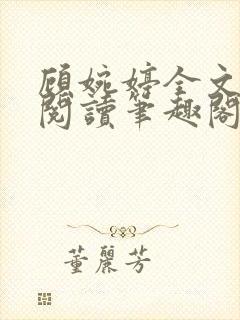 顧婉婷全文
閱讀筆趣閣
董麗芳